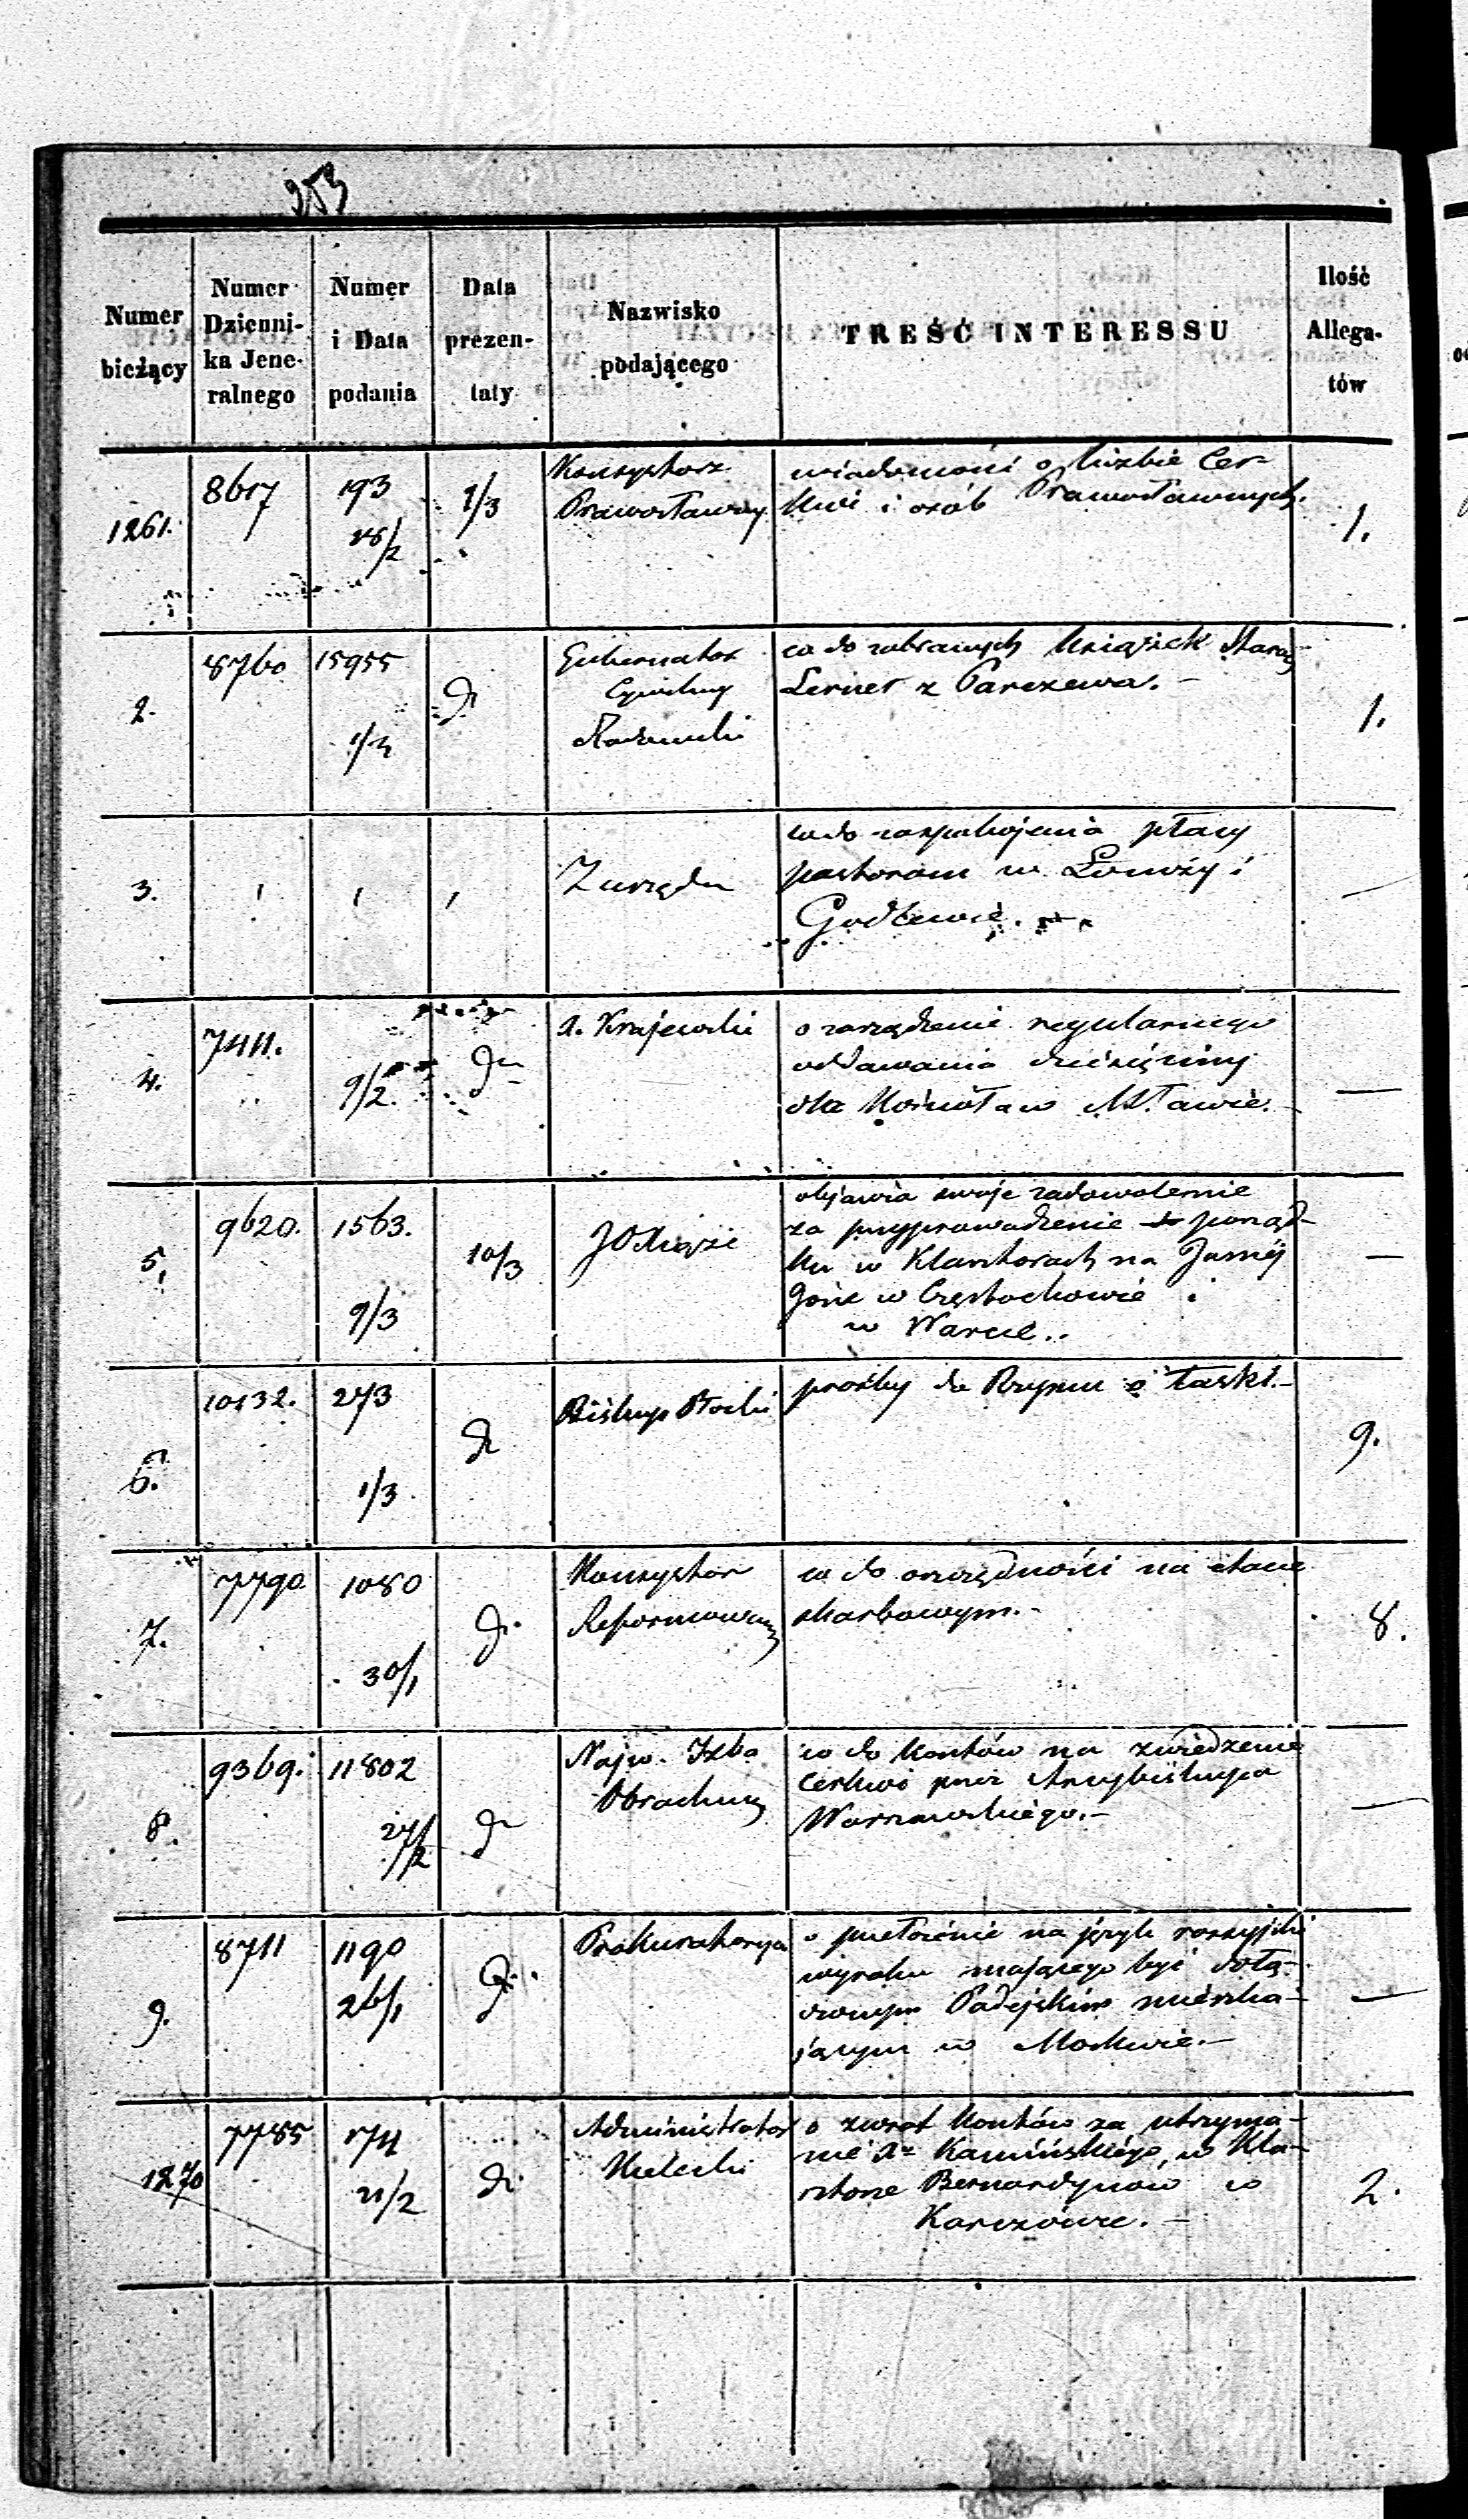 253
Numer bieżący
Numer Dzienni- ka Jene- ralnego
Numer i Data podania
Data prezen- taty
Nazwisko podającego
TREŚĆ INTERESSU
Ilość Allega- tów
1261.
8617
193
28/2
9/3
Konsystorz
Prawosławny
wiadomości o liczbie Cer-
kwi i osób Prawosławnych.
1.
2.
8760
15955
1/3
Gubernator
Cywilny
Radomski
co do zabranych książek
Lerner z Parczewa. -
1.
3.
Z urzędu
co do zaspokojenia płacy
pastorom w Łomży i
Godlewie.
4.
7411.
9/2.
X. Krajewski
o zarządzenie regularnego
oddawania dziesięciny
dla Kościoła w Mławie. -
5.
9620.
1563.
9/3
10/3
JO Książe
objawia swoje zadowolenie
za przyprowadzenie porząd-
ku w Klasztorach na Jasnéj
Górze w Częstochowie i
w Warcie..
6.
10132.
273
1/3
Biskup Płocki
prośby do Rzymu o łaski. -
9.
7.
7790
1080
30/1
Konsystorz
Reformowany
co do oszczędności na etacie
skarbowym. -
8.
8.
9369.
11802
27/2
Najw. Izba
Obrachun
co do kosztów na zwiedzenie
Cerkwi przez Arcybiskupa
Warszawskiego. -
9.
8711
1190
26/1
Prokuratorya
o przełożenie na język rossyjski
wyroku mającego być dorę-
czonym Padejskim mieszka-
jącym w Moskwie. -
1270
7785
174
21/2
Administrator
Kielecki
o zwrot kosztów za utrzyma-
nie Xa Kamińskiego, w Kla-
sztorze Bernardynow w
Karczówce. -
2.